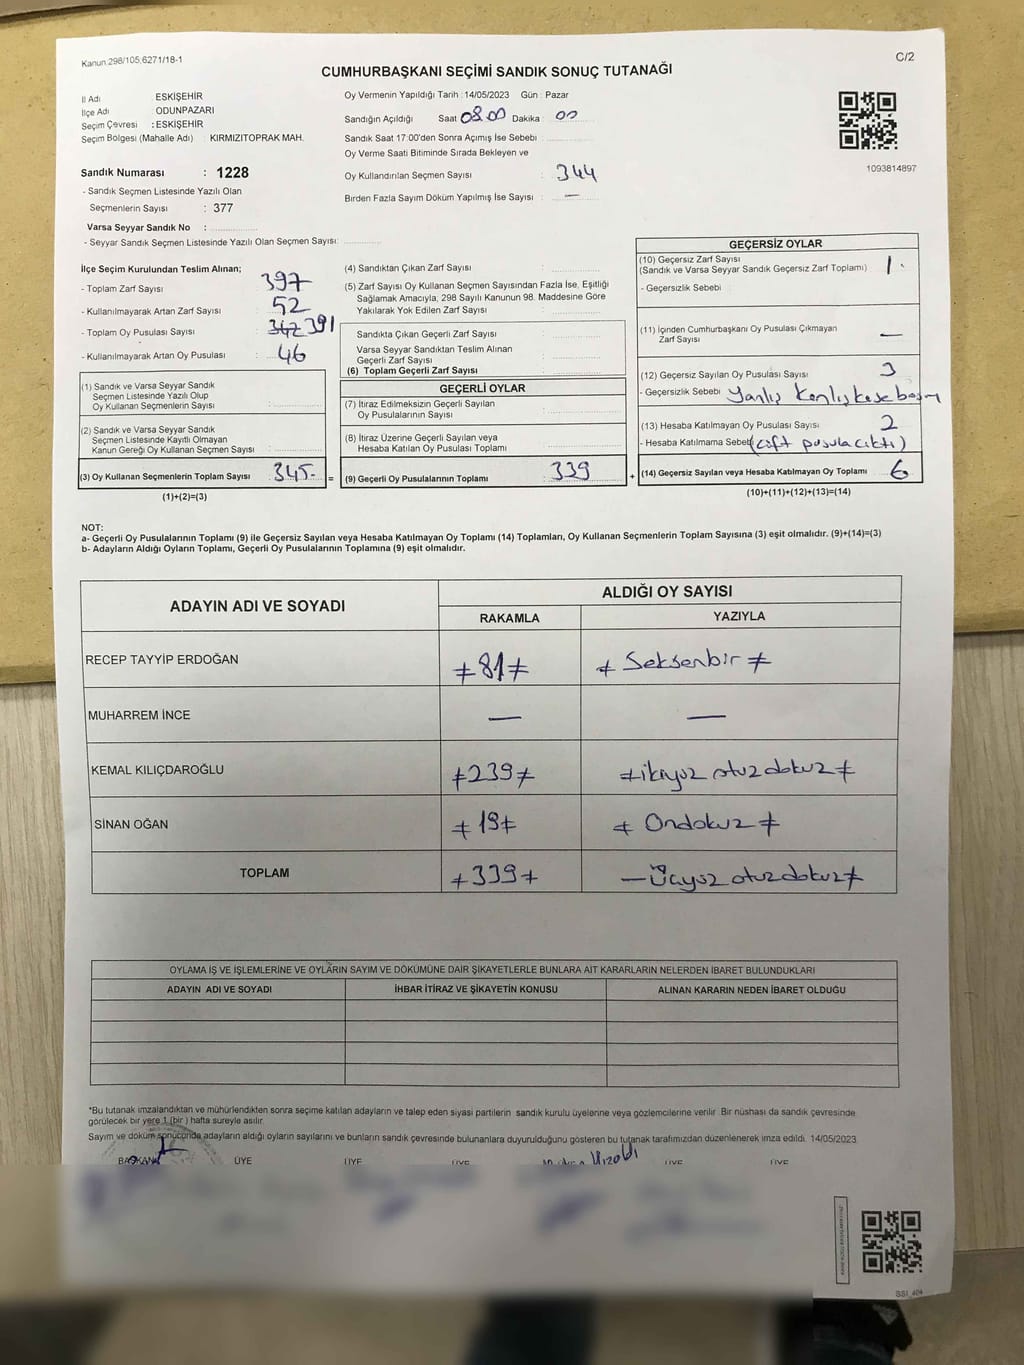 Kanun 298/105,6271/18-1
C/2
CUMHURBAŞKANI SEÇİMİ SANDIK SONUÇ TUTANAĞI
İl Adı ESKİŞEHİR
İlçe Adı ODUNPAZARI
Seçim Çevresi : ESKİŞEHİR
Seçim Bölgesi (Mahalle Adı) : KIRMIZITOPRAK MAH.
Oy Vermenin Yapıldığı Tarih : 14/05/2023 Gün : Pazar
Sandığın Açıldığı Saat 08.00 Dakika : 00
Sandık Saat 17:00'den Sonra Açımış İse Sebebi :
Oy Verme Saati Bitiminde Sırada Bekleyen ve
Oy Kullandırılan Seçmen Sayısı : 344
Birden Fazla Sayım Döküm Yapılmış İse Sayısı : —
1093814897
Sandık Numarası : 1228
- Sandık Seçmen Listesinde Yazılı Olan
Seçmenlerin Sayısı : 377
Varsa Seyyar Sandık No :
- Seyyar Sandık Seçmen Listesinde Yazılı Olan Seçmen Sayısı:
İlçe Seçim Kurulundan Teslim Alınan;
- Toplam Zarf Sayısı : 397
- Kullanılmayarak Artan Zarf Sayısı : 52
- Toplam Oy Pusulası Sayısı : 342 391
- Kullanılmayarak Artan Oy Pusulası : 46
(1) Sandık ve Varsa Seyyar Sandık
Seçmen Listesinde Yazılı Olup
Oy Kullanan Seçmenlerin Sayısı :
(2) Sandık ve Varsa Seyyar Sandık
Seçmen Listesinde Kayıtlı Olmayan
Kanun Gereği Oy Kullanan Seçmen Sayısı :
(3) Oy Kullanan Seçmenlerin Toplam Sayısı : 345-
=
(1)+(2)=(3)
(4) Sandıktan Çıkan Zarf Sayısı :
(5) Zarf Sayısı Oy Kullanan Seçmen Sayısından Fazla İse, Eşitliği
Sağlamak Amacıyla, 298 Sayılı Kanunun 98. Maddesine Göre
Yakılarak Yok Edilen Zarf Sayısı :
Sandıkta Çıkan Geçerli Zarf Sayısı :
Varsa Seyyar Sandıktan Teslim Alınan
Geçerli Zarf Sayısı :
(6) Toplam Geçerli Zarf Sayısı :
GEÇERLİ OYLAR
(7) İtiraz Edilmeksizin Geçerli Sayılan
Oy Pusulalarının Sayısı :
(8) İtiraz Üzerine Geçerli Sayılan veya
Hesaba Katılan Oy Pusulası Toplamı :
(9) Geçerli Oy Pusulalarının Toplamı : 339
+
GEÇERSİZ OYLAR
(10) Geçersiz Zarf Sayısı : 1.
(Sandık ve Varsa Seyyar Sandık Geçersiz Zarf Toplamı)
- Geçersizlik Sebebi :
(11) İçinden Cumhurbaşkanı Oy Pusulası Çıkmayan
Zarf Sayısı : —
(12) Geçersiz Sayılan Oy Pusulası Sayısı : 3
- Geçersizlik Sebebi : Yanlış
(13) Hesaba Katılmayan Oy Pusulası Sayısı : 2
- Hesaba Katılmama Sebebi (çift pusula çıktı)
(14) Geçersiz Sayılan veya Hesaba Katılmayan Oy Toplamı : 6
(10)+(11)+(12)+(13)=(14)
NOT:
a- Geçerli Oy Pusulalarının Toplamı (9) ile Geçersiz Sayılan veya Hesaba Katılmayan Oy Toplamı (14) Toplamları, Oy Kullanan Seçmenlerin Toplam Sayısına (3) eşit olmalıdır. (9)+(14)=(3)
b- Adayların Aldığı Oyların Toplamı, Geçerli Oy Pusulalarının Toplamına (9) eşit olmalıdır.
ADAYIN ADI VE SOYADI
ALDIĞI OY SAYISI
RAKAMLA YAZIYLA
RECEP TAYYİP ERDOĞAN ≠81≠ ≠ Seksenbir ≠
MUHARREM İNCE — —
KEMAL KILIÇDAROĞLU ≠239≠ ≠ikiyüz otuzdokuz≠
SİNAN OĞAN ≠19≠ ≠ Ondokuz ≠
TOPLAM ≠339≠ —Üçyüz otuzdokuz≠
OYLAMA İŞ VE İŞLEMLERİNE VE OYLARIN SAYIM VE DÖKÜMÜNE DAİR ŞİKAYETLERLE BUNLARA AİT KARARLARIN NELERDEN İBARET BULUNDUKLARI
ADAYIN ADI VE SOYADI İHBAR İTİRAZ VE ŞİKAYETİN KONUSU ALINAN KARARIN NEDEN İBARET OLDUĞU
*Bu tutanak imzalandıktan ve mühürlendikten sonra seçime katılan adayların ve talep eden siyasi partilerin sandık kurulu üyelerine veya gözlemcilerine verilir. Bir nüshası da sandık çevresinde
görülecek bir yere 1 (bir ) hafta süreyle asılır.
Sayım ve döküm sonucunda adayların aldığı oyların sayılarını ve bunların sandık çevresinde bulunanlara duyurulduğunu gösteren bu tutanak tarafımızdan düzenlenerek imza edildi. 14/05/2023
BAŞKAN ÜYE ÜYE ÜYE ÜYE ÜYE
SSI_404